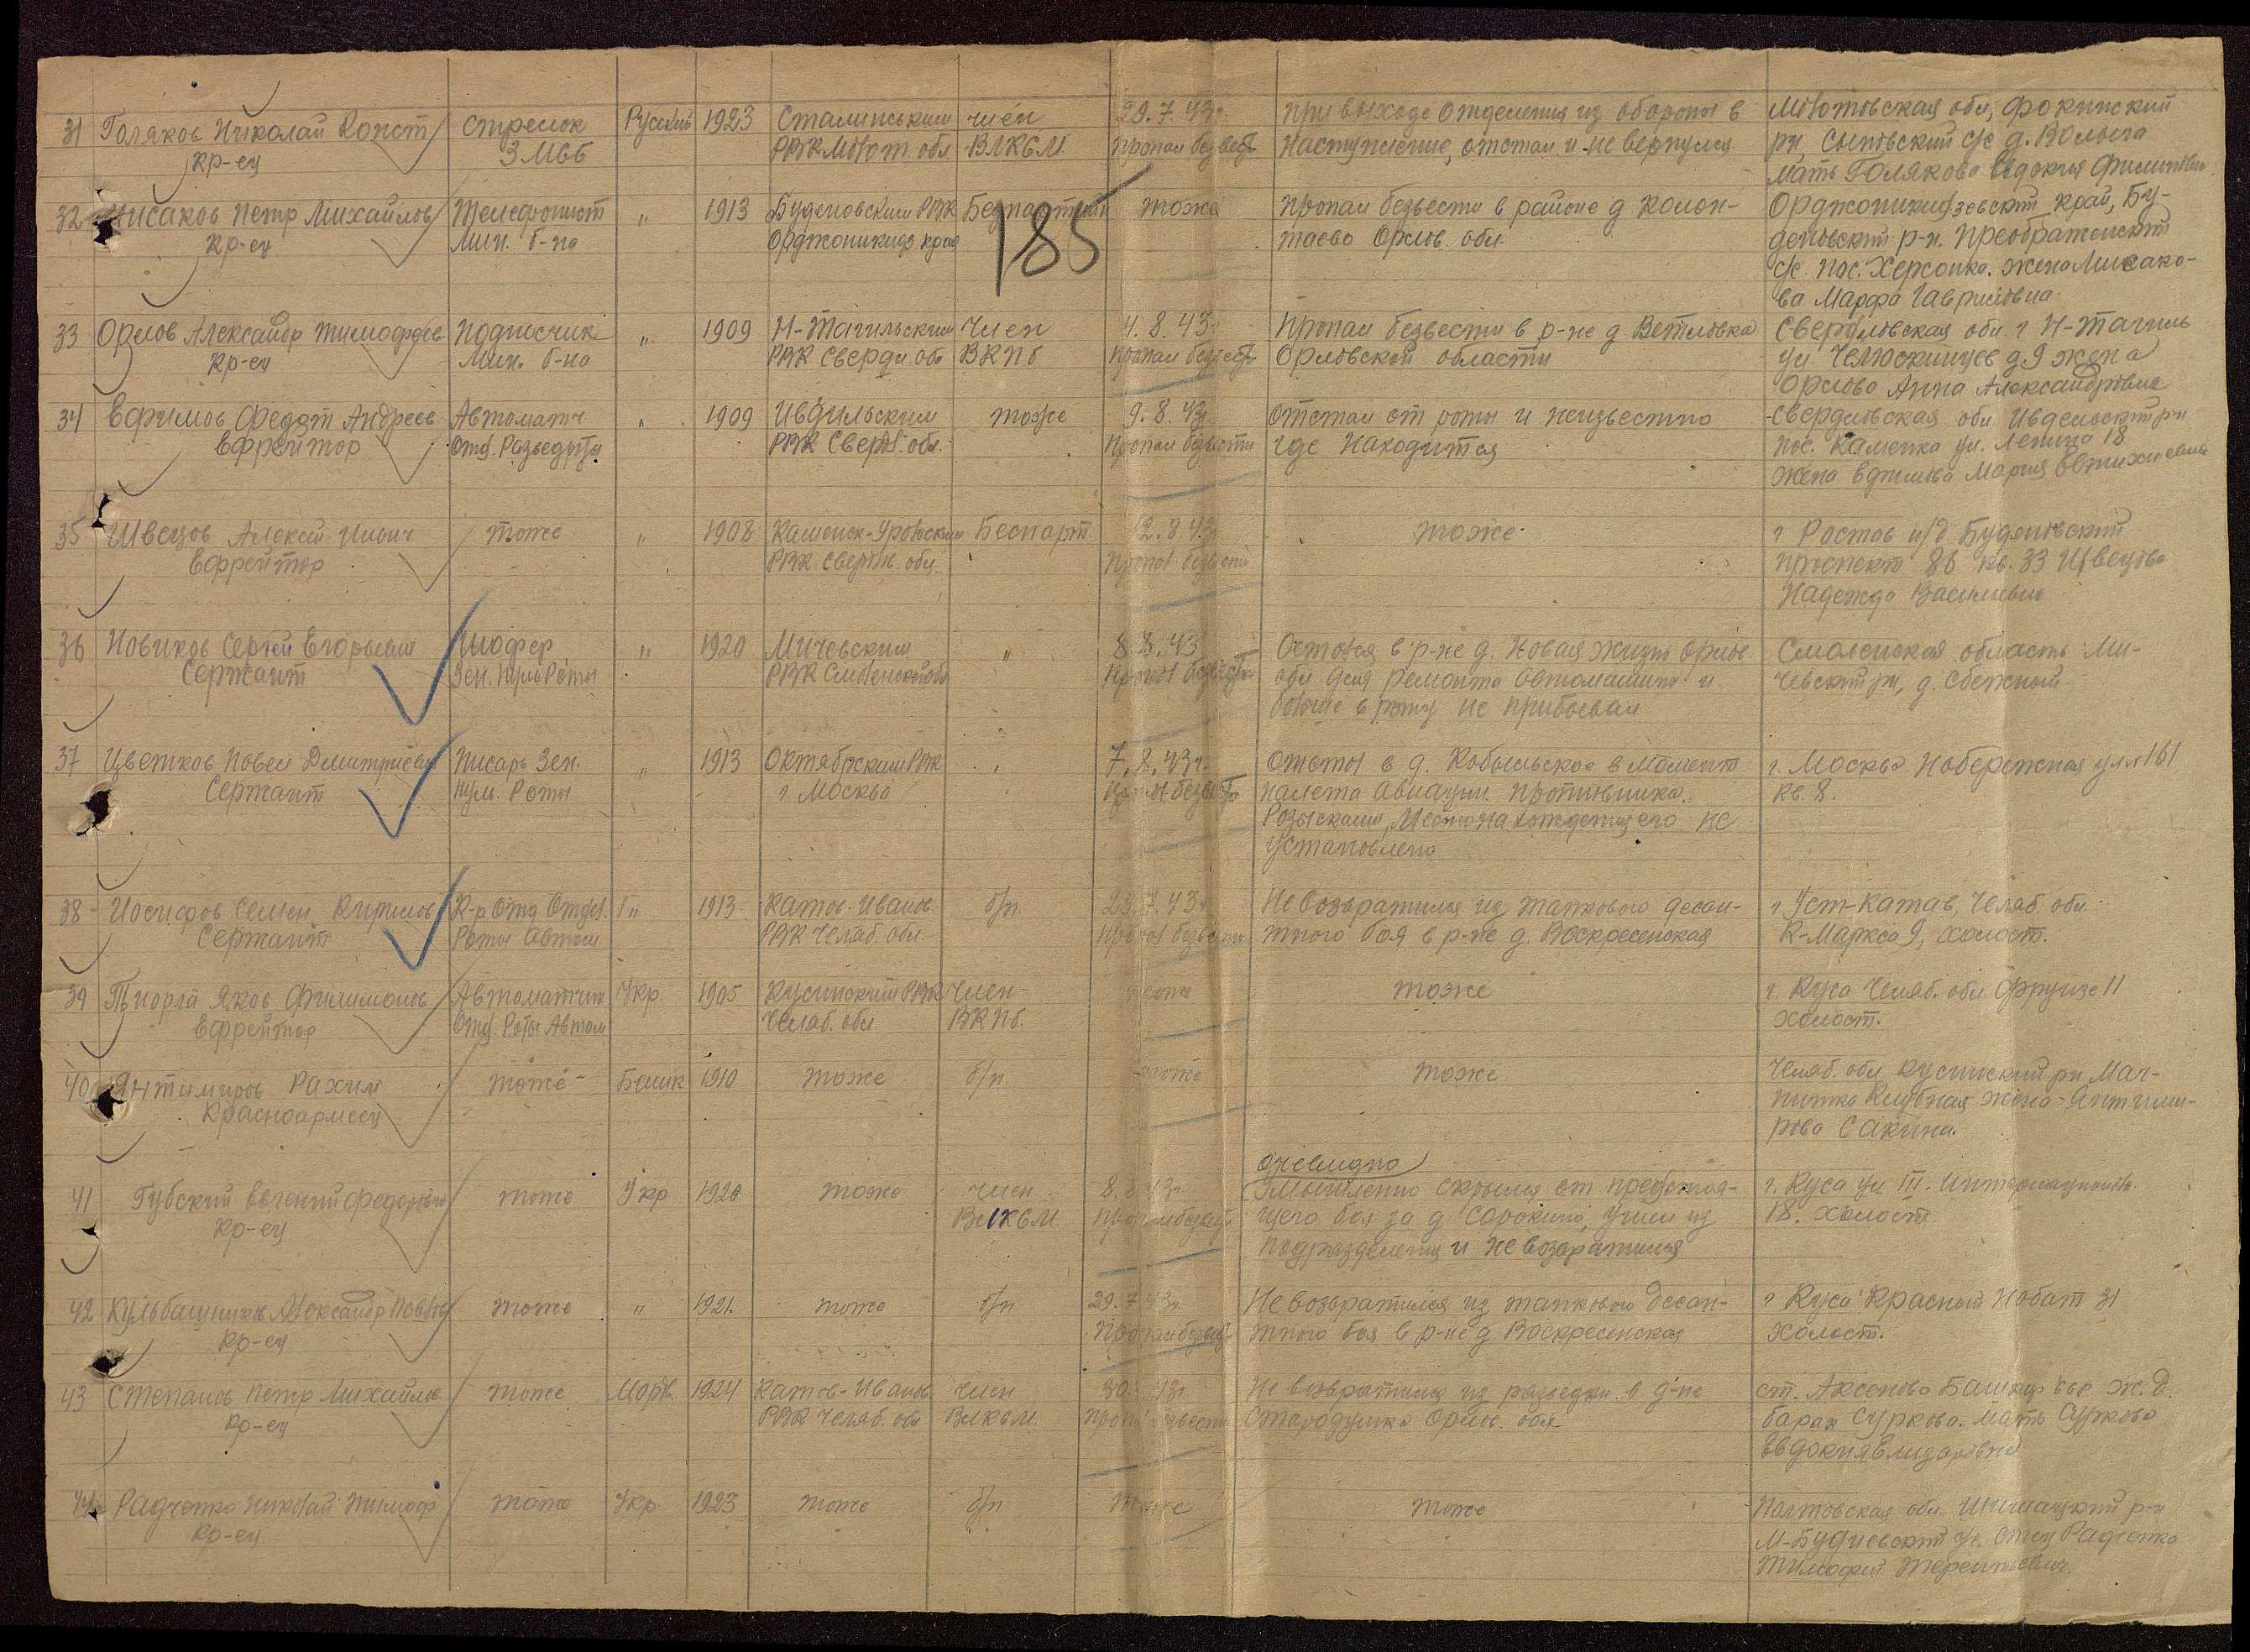 31 Голяков Николай Конст. стрелок Русский 1923 Сталинским член 29.7.43г. при выходе отделения из обороны в Молотовская обл, Фокинский
кр-ец 3 МББ РВК Молот. обл ВЛКСМ пропал безвест наступление, отстал и не вернулся рн с/с д.
мать Голякова Евдокия
32 Петр Михайлов Телефонист " 1913 Буденовским РВК Беспартийн тоже Пропал безвести в районе д. Колон- Орджоникидзевский край, Бу-
кр-ец Мин. б-на Орджоникидз края 185 таево Орлов. обл. деновский р-н. Преображенский
с/с пос. Херсонка. жена
ва Марфа Гавриловна
33 Орлов Александр Тимофеев Подносчик " 1909 Н-Тагильским Член 4.8.43г Пропал безвести в р-не д Ветловка Свердловская обл. г Н-Тагиль
кр-ец Мин. б-на РВК Свердл обл ВКПб пропал безвест Орловской области ул Челюскинцев д.9 жена
Орлова Анна Александровна
34 Ефимов Федот Андреев Автоматч " 1909 Ивдильским тоже 9.8.43г Отстал от роты и неизвестно Свердловская обл Ивдельский рн
Ефрейтор Отд. Разведроты РВК Сверд. обл. Пропал безвести где находится пос. ул. Ленина 18
жена Ефимова Мария
35 Швецов Алексей Ильич тоже " 1908 Каменск-Уральским Беспарт. 12.8.43г тоже г Ростов н/д Буденовский
Ефрейтор РВК Свердл. обл. Пропал безвести проспект 86 кв. 33 Швецова
Надежда Васильевна
36 Новиков Сергей Егорьевич Шофер " 1920 Мичевским " 8.8.43 Остался в р-не д. Новая жизнь Орлов Смоленская область Ми-
Сержант Зен. Пульроты РВК Смоленской обл Пропал безвест обл для ремонта автомашины и чевский рн, д.
больше в роту не прибывал
37 Цветков Павел Дмитриевич Писарь Зен. " 1913 Октябрским РВК " 7.8.43г. Отстал в д. Кобыльское в момент г. Москва Набережная ул
Сержант пул. Роты г Москва пропал безвест налета авиации противника. кв. 8.
Розысками, Местонахождения его не
установлено
38 Иосифов Семен Кирилов К-р Отд 1913 Катав-Иванов б/п. Невозвратился из танкового десан- г Уст-Катав, Челяб. обл.
Сержант Роты Автом РВК Челяб. обл. пропал безвести тного боя в р-не д. Воскресенская К-Маркса 9, холост.
39 Яков Филимонов Автоматчик Укр 1905 Кусинским РВК Член тоже тоже г. Куса Челяб. обл Фрунзе 11
Ефрейтор Отд. Роты Автом Челяб. обл ВКПб. холост.
40 Янтимиров Рахим тоже Башк 1910 тоже б/п. тоже тоже Челяб. обл Кусинский рн Маг-
Красноармеец нитка Клубная жена Янтими-
рова Сакина.
очевидно
41 Губский Евгений Федорович тоже Укр тоже член умышленно скрылся от предстоя- г. Куса ул III Интернационала
кр-ец ВЛКСМ пропал безвест щего боя за д Сорокино, ушел из 18. холост.
подразделения и не возвратился
42 Александр тоже " 1921. тоже б/п 29.7.43г Не возвратился из танкового десан- г Куса Красный Набат 31
кр-ец Пропал безвест тного боя в р-не д Воскресенская холост.
43 Степанов Петр Михайлов тоже Морд. 1924 Катав-Иванов член Не возвратился из разведки в р-не ст. Аксеново Башкир ж.д.
кр-ец РВК Челяб. обл ВЛКСМ. пропал безвести Стародумка Орлов. обл барак Суркова. мать Суркова
Евдокия
44 Радченко Николай Тимоф тоже Укр 1923 тоже б/п тоже тоже Полтовская обл. р-н
кр-ец с/с. отец Радченко
Тимофей Терентьевич.